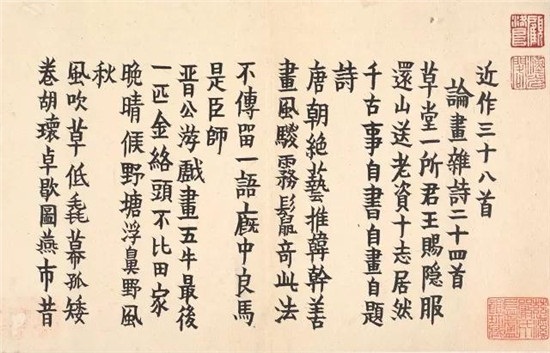 近作三十八首
論畫雜詩二十四首
草堂一所君王賜隱服
還山送老資十志居然
千古事自書自畫自題
詩
唐朝絕藝推韓幹善
畫風騣霧鬣奇此法
不傳留一語廐中良馬
是臣師
晉公游戲畫五牛最後
一匹金絡頭不比田家
晚晴候野塘浮鼻野風
秋
風吹草低毳幕孤矮
卷胡瓌卓歇圖燕市昔